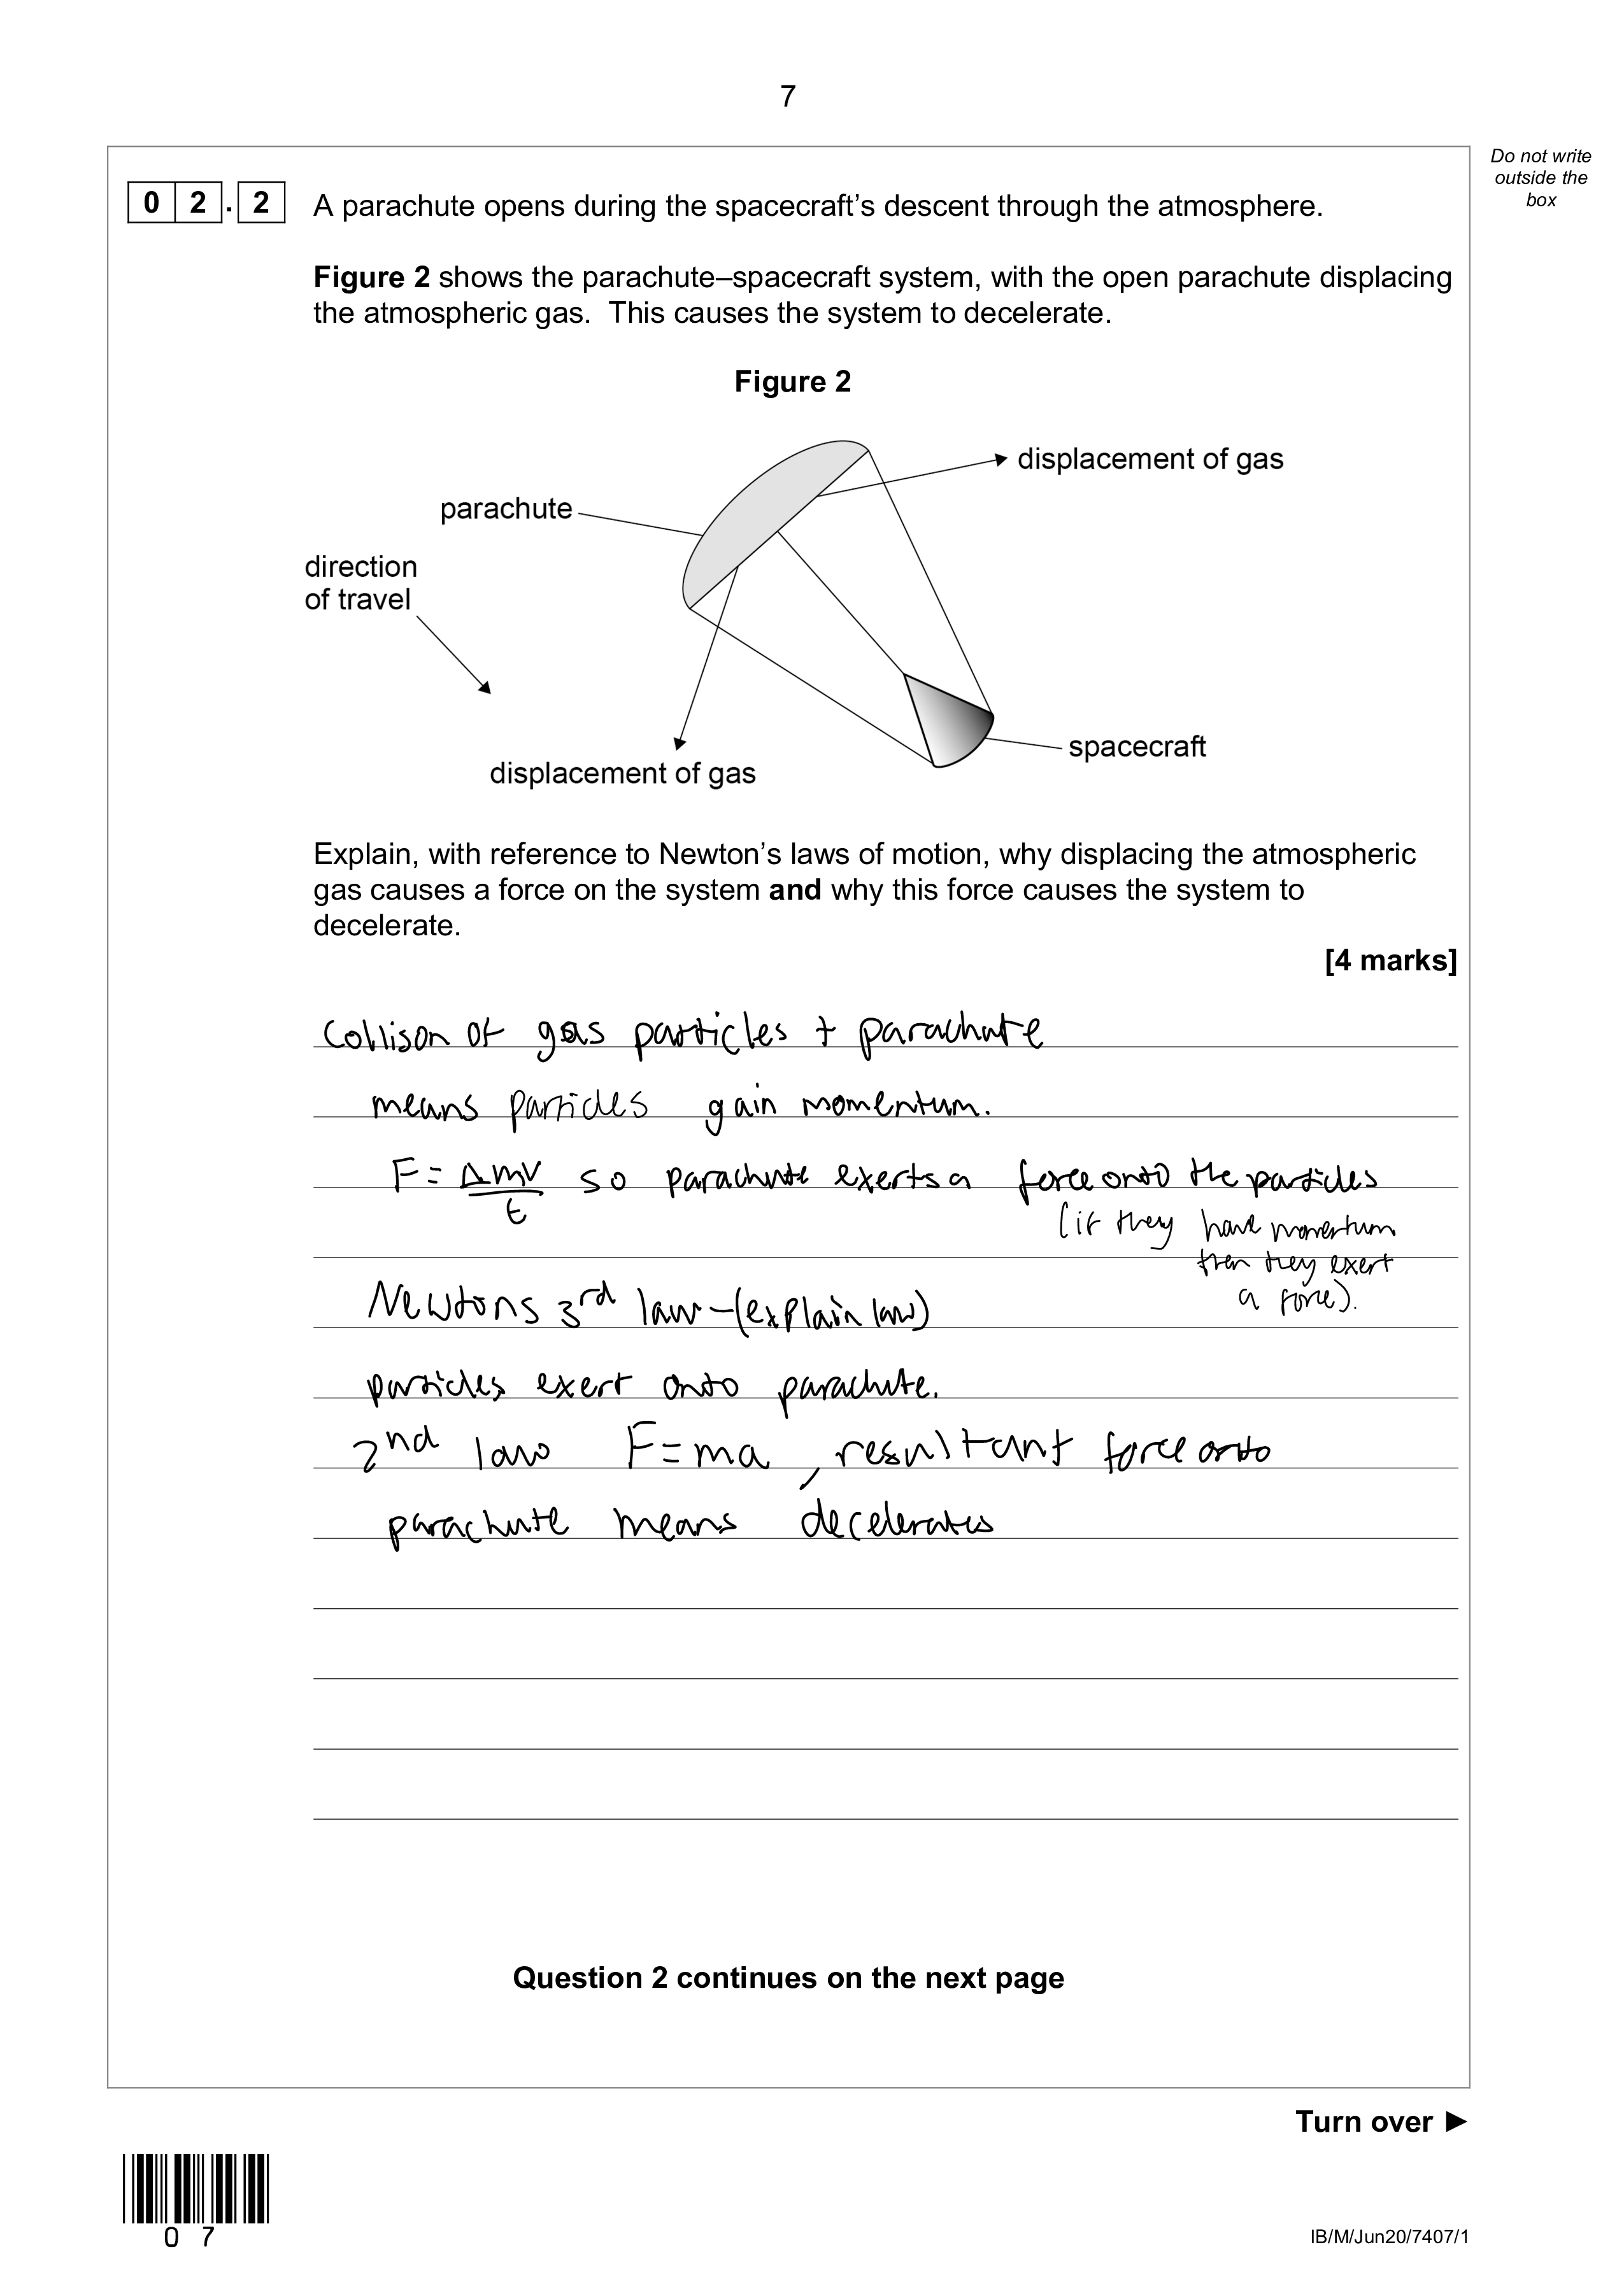 7
Do not write
outside the
box
0 2 . 2 A parachute opens during the spacecraft's descent through the atmosphere.
Figure 2 shows the parachute–spacecraft system, with the open parachute displacing
the atmospheric gas. This causes the system to decelerate.
Figure 2
displacement of gas
parachute
direction
of travel
spacecraft
displacement of gas
Explain, with reference to Newton's laws of motion, why displacing the atmospheric
gas causes a force on the system and why this force causes the system to
decelerate.
[4 marks]
Collison of gas particles + parachute
means particles gain momentum.
F = Δmv/t so parachute exerts a force onto the particles
(if they have momentum
then they exert
a force).
Newtons 3rd law – (explain law)
particles exert onto parachute.
2nd law F=ma, resultant force onto
parachute means decelerates
Question 2 continues on the next page
Turn over ►
0 7
IB/M/Jun20/7407/1